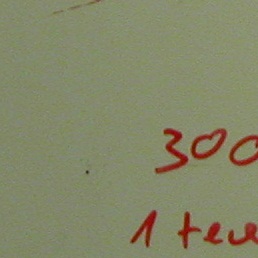 300
1 teu